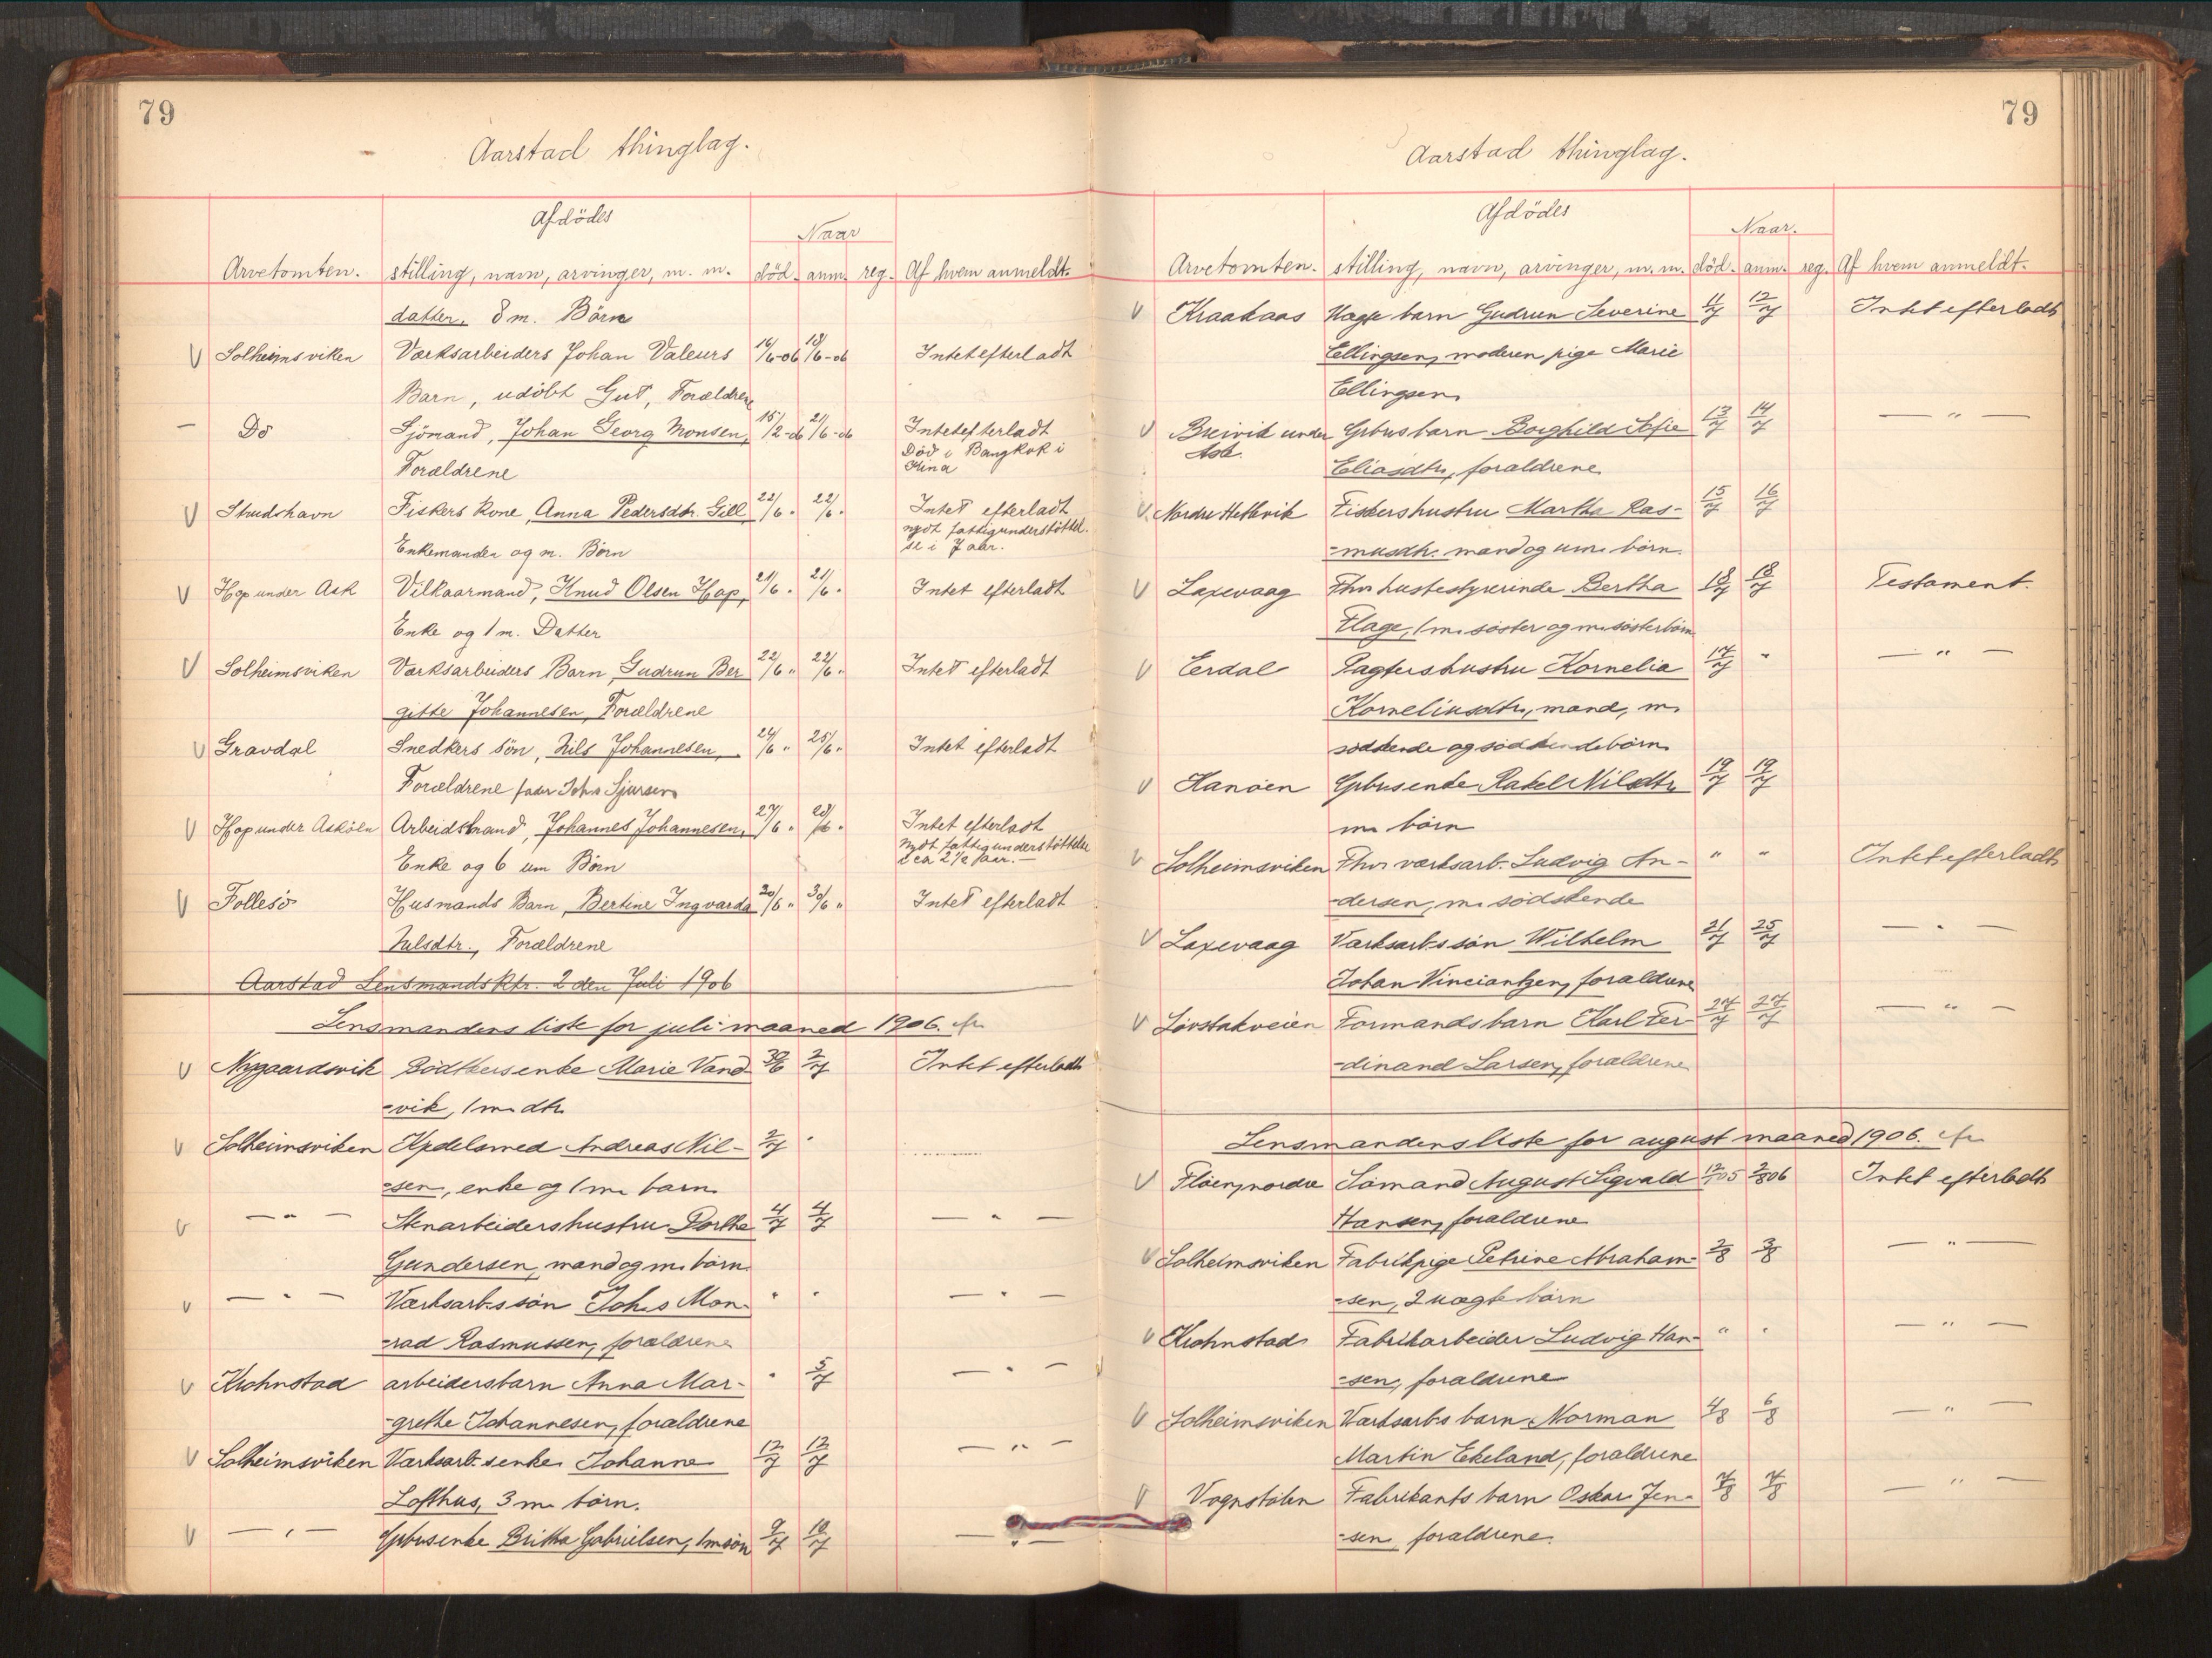 79
Aarstad thinglag.
Afdödes
Naar
Arvetomten. stilling, navn, arvinger, m. m. död. anm. reg. Af hvem anmeldt.
datter, 8 m. Börn
V Solheimsviken Værksarbeiders Johan Valeurs 16/6-06 18/6-06 Intet efterladt
Barn, udöbt Gut, Forældrene
— Do Sjömand, Johan Georg Monsen, 15/2-06 21/6-06 Intet efterladt
Död i Bangkok i
Kina
Forældrene
V Strudshavn Fiskers Kone, Anna Pedersdtr. Gill 22/6 " 22/6 " Intet efterladt
nydt fattigunderstöttel-
se i 7 aar.
Enkemanden og m. Börn
V Hop under Ask Vilkaarmand, Knud Olsen Hop, 21/6 " 21/6 " Intet efterladt
Enke og 1 m. Datter
V Solheimsviken Værksarbeiders Barn, Gudrun Ber 22/6 " 22/6 " Intet efterladt
gitte Johannesen, Forældrene
V Gravdal Snedkers sön, Nils Johannesen, 24/6 " 25/6 " Intet efterladt
Forældrene fader Johs Sjursen
V Hop under Asköen Arbeidsmand, Johannes Johannesen, 27/6 " 28/6 " Intet efterladt
Nydt fattigunderstöttelse
i ca 2 1/2 aar. —
Enke og 6 um Börn
V Follesö Husmands Barn, Bertine Ingvarda 20/6 " 30/6 " Intet efterladt
Nilsdtr., Forældrene
Aarstad Lensmandsktr. 2 den Juli 1906
Lensmandens liste for juli maaned 1906.
V Nygaardsvik Bödkersenke Marie Vand- 30/6 2/7 Intet efterladt
-vik, 1 m. dtr.
V Solheimsviken Kjedelsmed Andreas Nil- 2/7 "
-sen, enke og 1 m. barn
V — " — Stenarbeidershustru Dorthe 4/7 4/7 — " —
Gundersen, mand og m. börn
V — " — Værksarb.s sön Johs Mon- " " — " —
-rad Rasmussen, forældrene
V Krohnstad arbeidersbarn Anna Mar- " 5/7 — " —
-grethe Johannesen, forældrene
V Solheimsviken Værksarb.s enke Johanne 12/7 12/7 — " —
Lofthus, 3 m. börn.
V — " — Gbrusenke Britha Gabrielsen, 1 m sön 9/7 10/7 — " —
79
Aarstad thinglag.
Afdödes
Naar.
Arvetomten. stilling, navn, arvinger, m. m. död. anm. reg. Af hvem anmeldt.
V Kraakaas Uægte barn Gudrun Severine 11/7 12/7 Intet efterladt
Ellingsen, moderen pige Marie
Ellingsen
V Breivik under Gbrus barn Borghild Sofie 13/7 14/7 — " —
Ask.
Eliasdtr, forældrene
V Nordre Hethvik Fiskershustru Martha Ras- 15/7 16/7
-musdtr. mand og um. börn
V Laxevaag Fhv. hustestyrerinde Bertha 18/7 18/7 Testament.
Flage, 1 m. söster og m. sösterbörn
V Eerdal Pagtershustru Kornelia 17/7 " — " —
Korneliusdtr, mand, m.
södskende og södskendebörn
V Hanöen Gbrusenke Rakel Nilsdtr 19/7 19/7
m. börn
V Solheimsviken Fhv. værksarb. Ludvig An- " " Intet efterladt
-dersen, m. södskende
V Laxevaag Værksarb.s sön Wilhelm 21/7 25/7 — " —
Johan Vinciantzen, forældrene
V Lövstakveien Formandsbarn Karl Fer- 27/7 27/7 — " —
-dinand Larsen, forældrene
Lensmandens liste for august maaned 1906.
V Flöen, nordre Sömand August Sigvald 05 2/8 06 Intet efterladt
Hansen, forældrene
V Solheimsviken Fabrikpige Petrine Abraham- 2/8 3/8 — " —
-sen, 2 uægte börn
V Krohnstad Fabrikarbeider Ludvig Han- " " — " —
-sen, forældrene
V Solheimsviken Værksarb.s barn Norman 4/8 6/8 — " —
Martin Ekeland, forældrene
V Vognstölen Fabrikants barn Oskar Jen- 7/8 7/8 — " —
-sen forældrene.